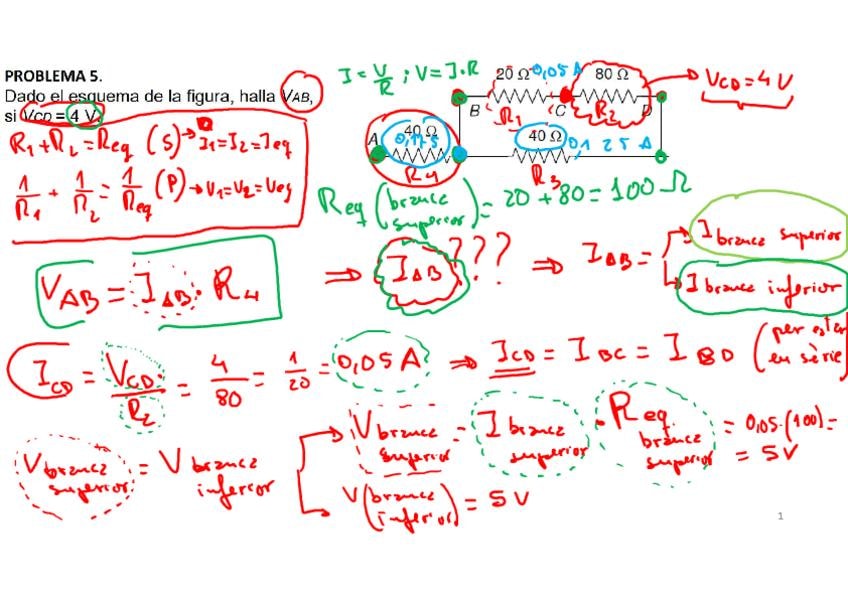 PROBLEMA 5.
Dado el esquema de la figura, halla VAB,
si VCD = 4 V.
I = V/R ; V = I·R
20 Ω 0,05 A 80 Ω
VCD = 4 V
B R1 C R2 D
A 40 Ω 0,175 R4
40 Ω 0,125 A R3
R1 + R2 = Req (S) → I1 = I2 = Ieq
1/R1 + 1/R2 = 1/Req (P) → V1 = V2 = Veq
Req (branca superior) = 20 + 80 = 100 Ω
VAB = IAB · R4 ⇒ IAB ??? ⇒ IAB = I branca superior
I branca inferior
ICD = VCD/R2 = 4/80 = 1/20 = 0,05 A ⇒ ICD = IBC = IBD (per estar en sèrie)
V branca superior = V branca inferior
V branca superior = I branca superior · Req branca superior = 0,05·(100) = = 5 V
V (branca inferior) = 5 V
1